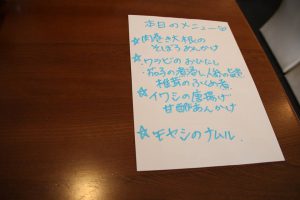 本日のメニュー
☆肉巻き大根の
そぼろあんかけ
・ワラビのおひたし
・茄子の煮浸し人参の
椎茸のふくめ煮
☆イワシの唐揚げ
甘酢あんかけ
☆モヤシのナムル